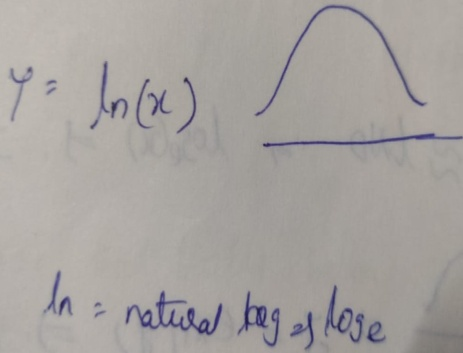 Y = ln(x)
ln = natural log ⇒ loge